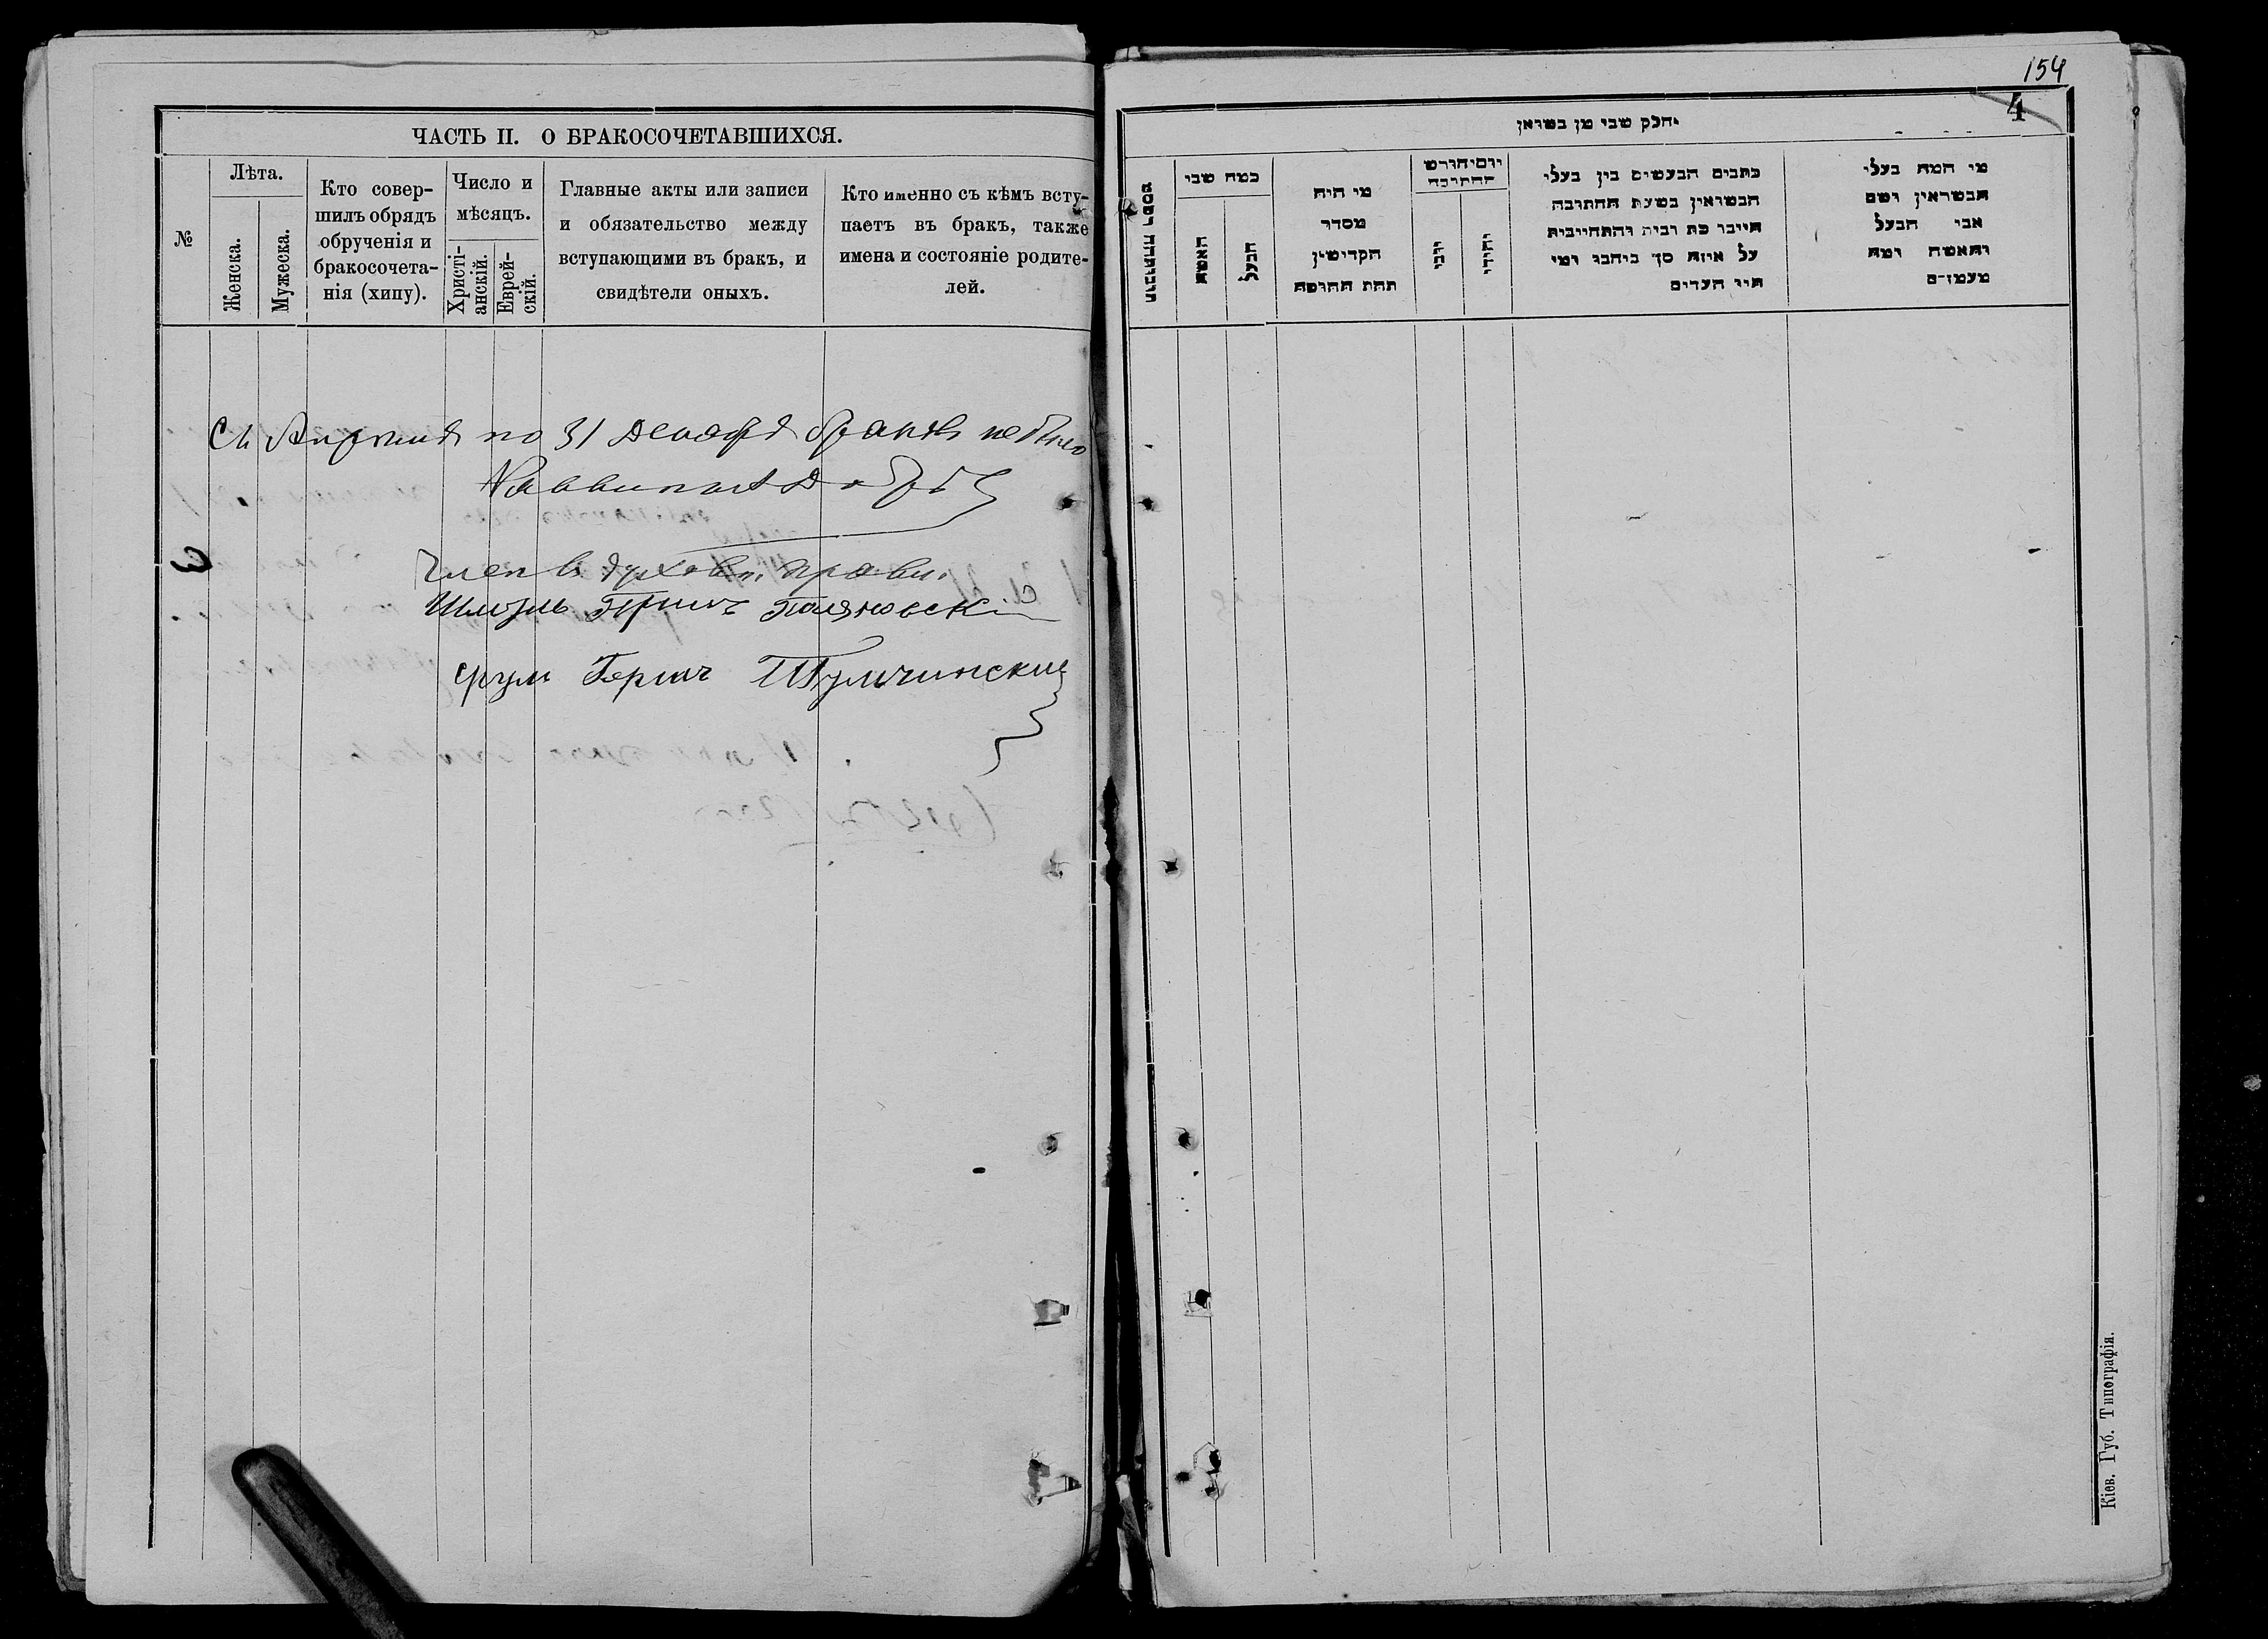 ЧАСТЬ II. О БРАКОСОЧЕТАВШИХСЯ.
№
Лѣта.
Женска.
Мужеска.
Кто совер-
шилъ обрядъ
обрученія и
бракосочета-
нія (хипу).
Число и
мѣсяцъ.
Христі-
анскій.
Еврей-
скій.
Главные акты или записи
и обязательство между
вступающими въ бракъ, и
свидѣтели оныхъ.
Кто именно съ кѣмъ всту-
паетъ въ бракъ, также
имена и состояніе родите-
лей.
по 31 Декабря браковъ не было
Раввинъ
Члены духовн. правл.
Шмуль Гершъ
Срул Гершъ Тульчинский
154
4
חלק שבי מן בשואן
כמה שבי
האשה
הבעל
מי היה
מסדר
הקדושין
תחת החופה
יום וחודש
החתובה
יוני
יהודי
כתבים הנעשים בין בעלי
הנשואין בשעת החתובה
על איזה סך
היו העדים
מי המה בעלי
הנשואין ושם
אבי הבעל
והאשה ומה
מעמדם
Кіев. Губ. Типографія.